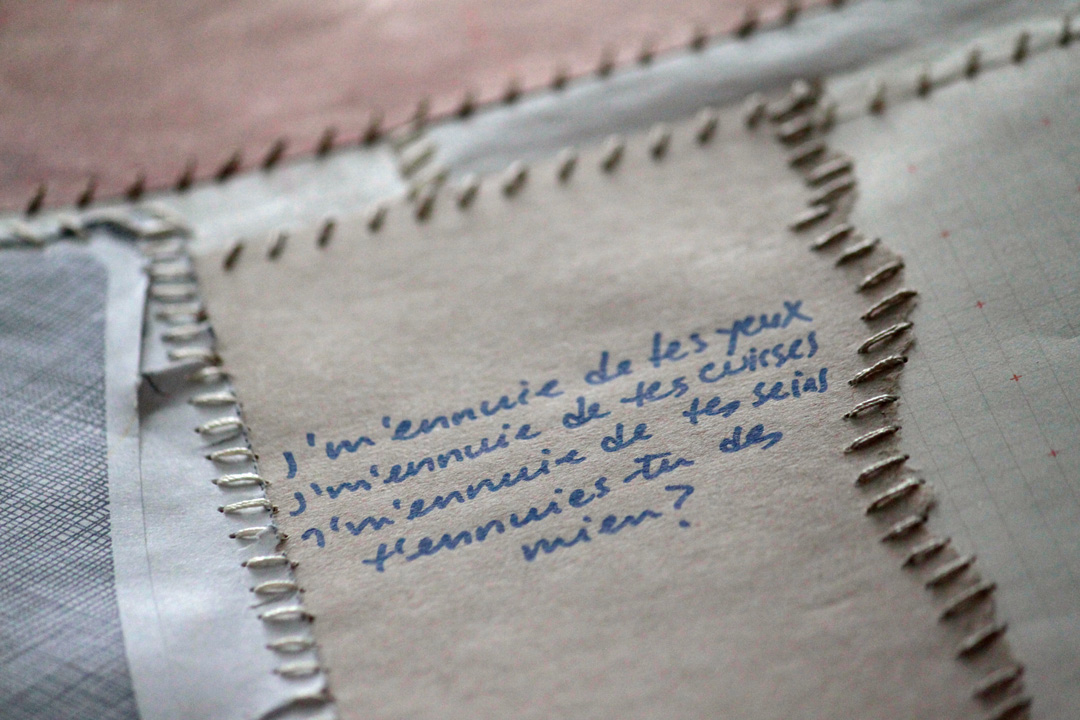 J'm'ennuie de tes yeux
J'm'ennuie de tes cuisses
J'm'ennuie de tes seins
t'ennuies-tu des
mien?